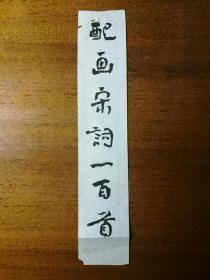 配画宋词一百首